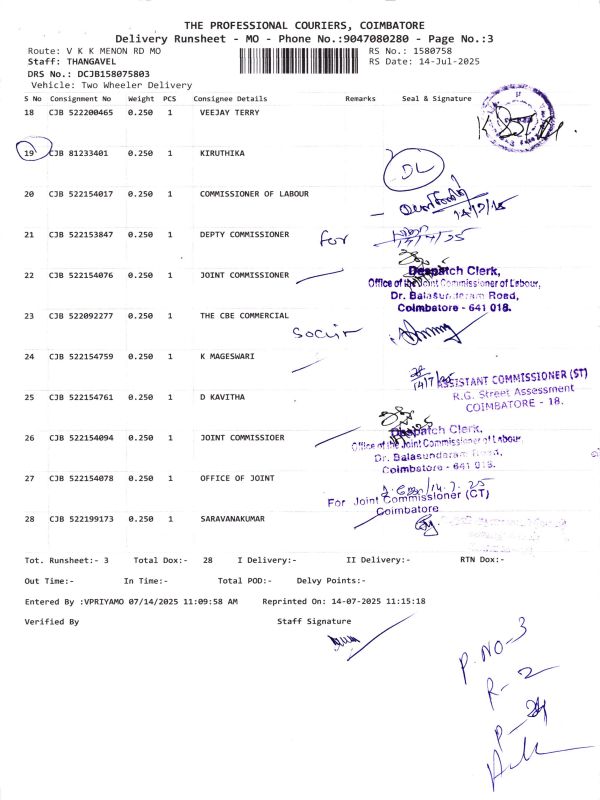 THE PROFESSIONAL COURIERS, COIMBATORE
Delivery Runsheet - MO - Phone No.:9047080280 - Page No.:3
Route: V K K MENON RD MO RS No.: 1580758
Staff: THANGAVEL RS Date: 14-Jul-2025
DRS No.: DCJB158075803
Vehicle: Two Wheeler Delivery
S No Consignment No Weight PCS Consignee Details Remarks Seal & Signature
18 CJB 522200465 0.250 1 VEEJAY TERRY
19 CJB 81233401 0.250 1 KIRUTHIKA
DL
20 CJB 522154017 0.250 1 COMMISSIONER OF LABOUR
14/7/25
21 CJB 522153847 0.250 1 DEPTY COMMISSIONER for
22 CJB 522154076 0.250 1 JOINT COMMISSIONER
Despatch Clerk,
Office of the Joint Commissioner of Labour,
Dr. Balasundaram Road,
Coimbatore - 641 018.
23 CJB 522092277 0.250 1 THE CBE COMMERCIAL
24 CJB 522154759 0.250 1 K MAGESWARI
14/7/25
ASSISTANT COMMISSIONER (ST)
R.G. Street Assessment
COIMBATORE - 18.
25 CJB 522154761 0.250 1 D KAVITHA
26 CJB 522154094 0.250 1 JOINT COMMISSIOER
Despatch Clerk,
Office of the Joint Commissioner of Labour,
Dr. Balasundaram Road,
Coimbatore - 641 018.
27 CJB 522154078 0.250 1 OFFICE OF JOINT
14.7.25
For Joint Commissioner (CT)
Coimbatore
28 CJB 522199173 0.250 1 SARAVANAKUMAR
Tot. Runsheet:- 3 Total Dox:- 28 I Delivery:- II Delivery:- RTN Dox:-
Out Time:- In Time:- Total POD:- Delvy Points:-
Entered By :VPRIYAMO 07/14/2025 11:09:58 AM Reprinted On: 14-07-2025 11:15:18
Verified By Staff Signature
P. NO-3
R-2